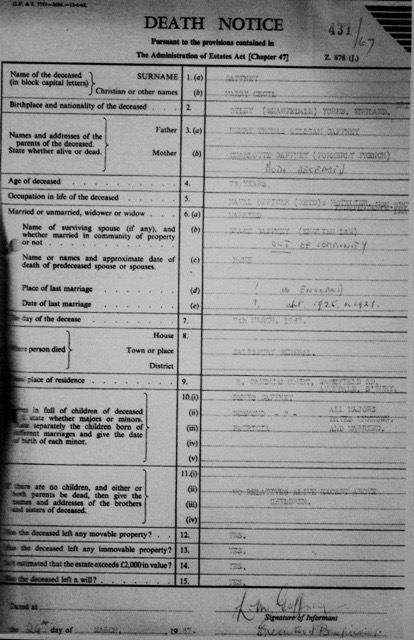 DEATH NOTICE
431/67
Pursuant to the provisions contained in
The Administration of Estates Act [Chapter 47]
Z. 878 (J.)
Name of the deceased (in block capital letters) SURNAME 1. (a) GAFFNEY
Christian or other names (b) HARRY CECIL
Birthplace and nationality of the deceased 2. (WHARFEDALE) YORKS, ENGLAND.
Names and addresses of the parents of the deceased. State whether alive or dead. Father 3. (a) THOMAS WILLIAM GAFFNEY
Mother (b) CHARLOTTE GAFFNEY (FORMERLY FRENCH)
BOTH DECEASED
Age of deceased 4. YEARS.
Occupation in life of the deceased 5. NAVAL OFFICER (RETD),
Married or unmarried, widower or widow 6. (a) MARRIED
Name of surviving spouse (if any), and whether married in community of property or not (b) GAFFNEY (ENGLISH LAW)
OUT OF COMMUNITY
Name or names and approximate date of death of predeceased spouse or spouses. (c) NONE
Place of last marriage (d) ? IN ENGLAND
Date of last marriage (e) ?
The day of the deceased 7. 7th MARCH, 1967.
Where person died House 8.
Town or place SALISBURY GENERAL.
District
place of residence 9. COURT,
10.(i) GAFFNEY
in full of children of deceased (ii) " " ALL MAJORS
state whether majors or minors. (iii) PATRICIA AND MARRIED.
separately the children born of different marriages and give the date of birth of each minor. (iv)
(v)
11.(i)
there are no children, and either or (ii) NO RELATIVES ALIVE EXCEPT ABOVE
both parents be dead, then give the (iii) CHILDREN.
names and addresses of the brothers and sisters of deceased. (iv)
the deceased left any movable property? 12. YES.
the deceased left any immovable property? 13. YES.
estimated that the estate exceeds £2,000 in value? 14. YES.
the deceased left a will? 15. YES.
Dated at
Gaffney
Signature of Informant
the 24th day of MARCH, 1967.